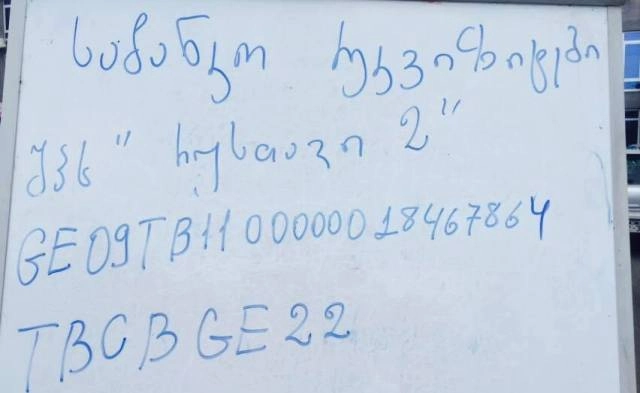 საბანკო რეკვიზიტები
შპს "რუსთავი 2"
GE09TB1100000018467864
TBCBGE22